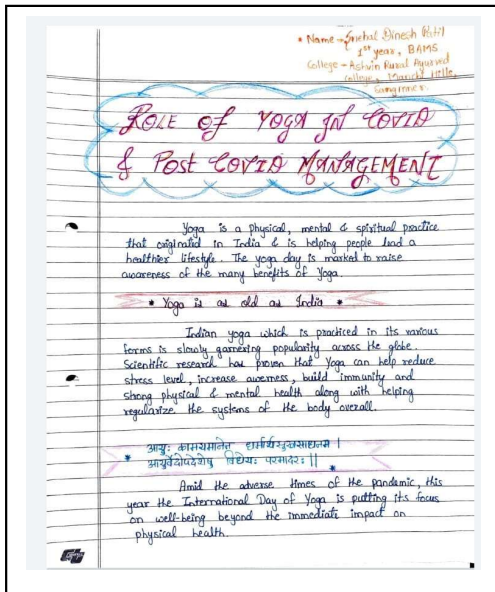 * Name - Snehal Dinesh Patil
1st year, BAMS
College - Ashvin Rural Ayurved
college, Manchi Hille,
Sangamner.
ROLE OF YOGA IN COVID
& POST COVID MANAGEMENT
Yoga is a physical, mental & spiritual practice
that originated in India & is helping people lead a
healthier lifestyle. The yoga day is marked to raise
awareness of the many benefits of Yoga.
* Yoga is as old as India *
Indian yoga which is practiced in its various
forms is slowly garnering popularity across the globe.
Scientific research has proven that Yoga can help reduce
stress level, increase awerness, build immunity and
strong physical & mental health along with helping
regularize the systems of the body overall.
* आयुः कामयमानेन धर्मार्थसुखसाधनम् |
आयुर्वेदोपदेशेषु विधेयः परमादरः || *
Amid the adverse times of the pandemic, this
year the International Day of Yoga is putting its focus
on well-being beyond the immediate impact on
physical health.